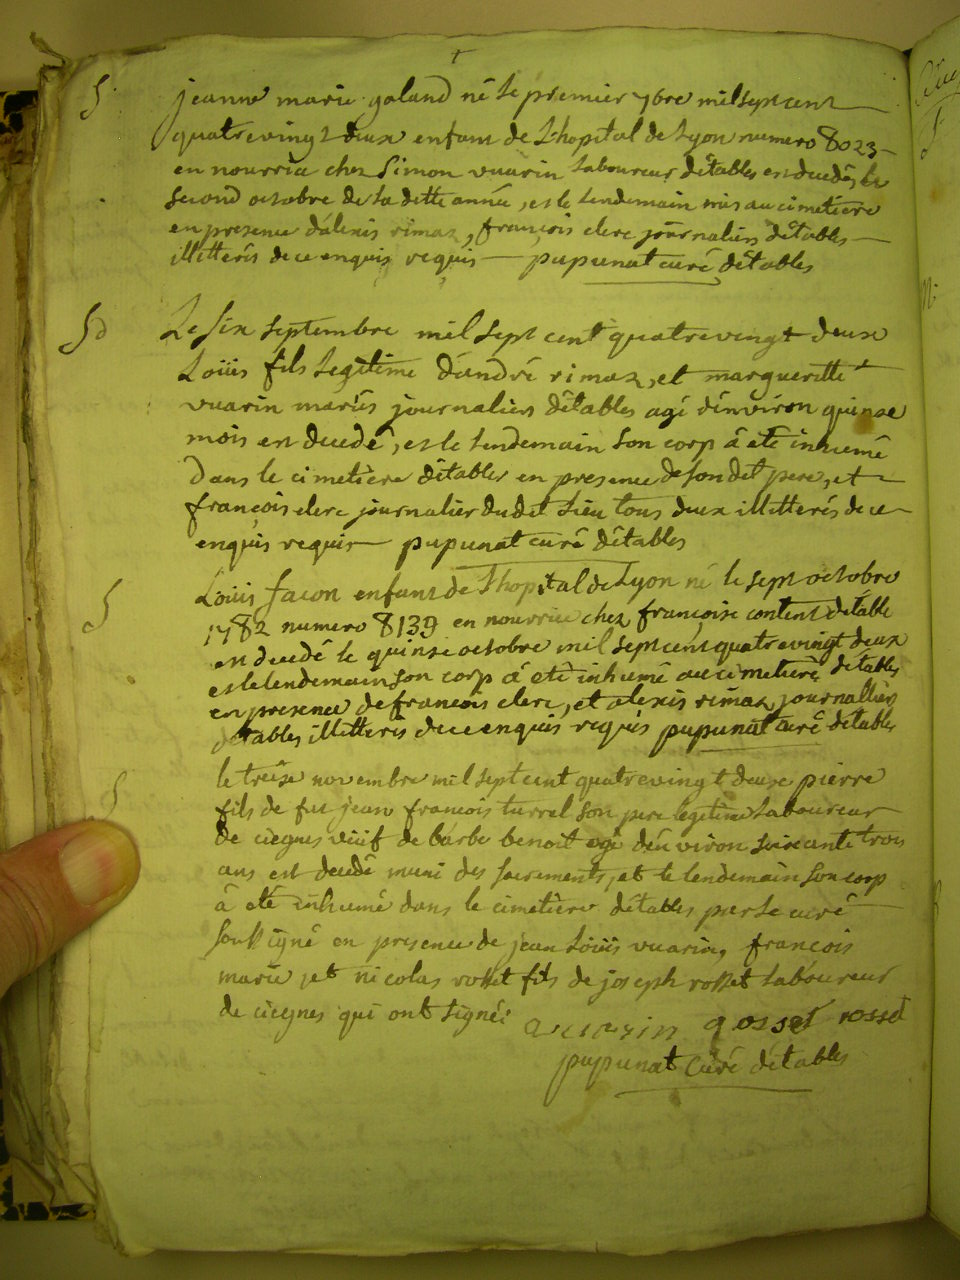 S. jeanne marie galand né le premier 7bre mil sept cent
quatre vingt deux enfant de L'hopital de Lyon numero 8023
en nourrice chez Simon vuarin Laboureur détables est decedés le
second octobre de la ditte année, et le lendemain mis au cimetiere
en presence d'alexis rimaz, françois clerc journaliers détables
illitterés de ce enquis requis pupunat curé détables
Sd Le Six septembre mil sept cent quatre vingt deux
Loüis fils Legitime d'andré rimaz, et margueritte
vuarin mariés journaliers détables agé d'environ quinse
mois est decedé, et le lendemain son corp à eté inhumé
Dans le cimetiere détables en presence de son dit pere, et
françois clerc journalier du dit Lieu tous deux illitterés de ce
enquis requis pupunat curé détables
S Loüis facon enfant de L'hopital de Lyon né le sept octobre
1782 numero 8139 en nourrice chez françoise content détable
est decedé le quinse octobre mil sept cent quatre vingt deux
et le lendemain son corp à eté inhumé au cimetiere détables
en presence de francois clerc, et alexis rimaz journalliers
détables illitterés de ce enquis requis pupunat curé détables
S le treise novembre mil sept cent quatre vingt deux pierre
fils de feu jean francois turrel son pere legitime Laboureur
de ciegnes veüf de barbe benoit agé d'environ soixante trois
ans est decedé muni des sacrements, et le lendemain son corp
à eté inhumé dans le cimetiere détables par le curé
soussigné en presence de jean Loüis vuarin, francois
marie, et nicolas rosset fils de joseph rosset Laboureur
de ciegnes qui ont signés rosset
pupunat curé détables